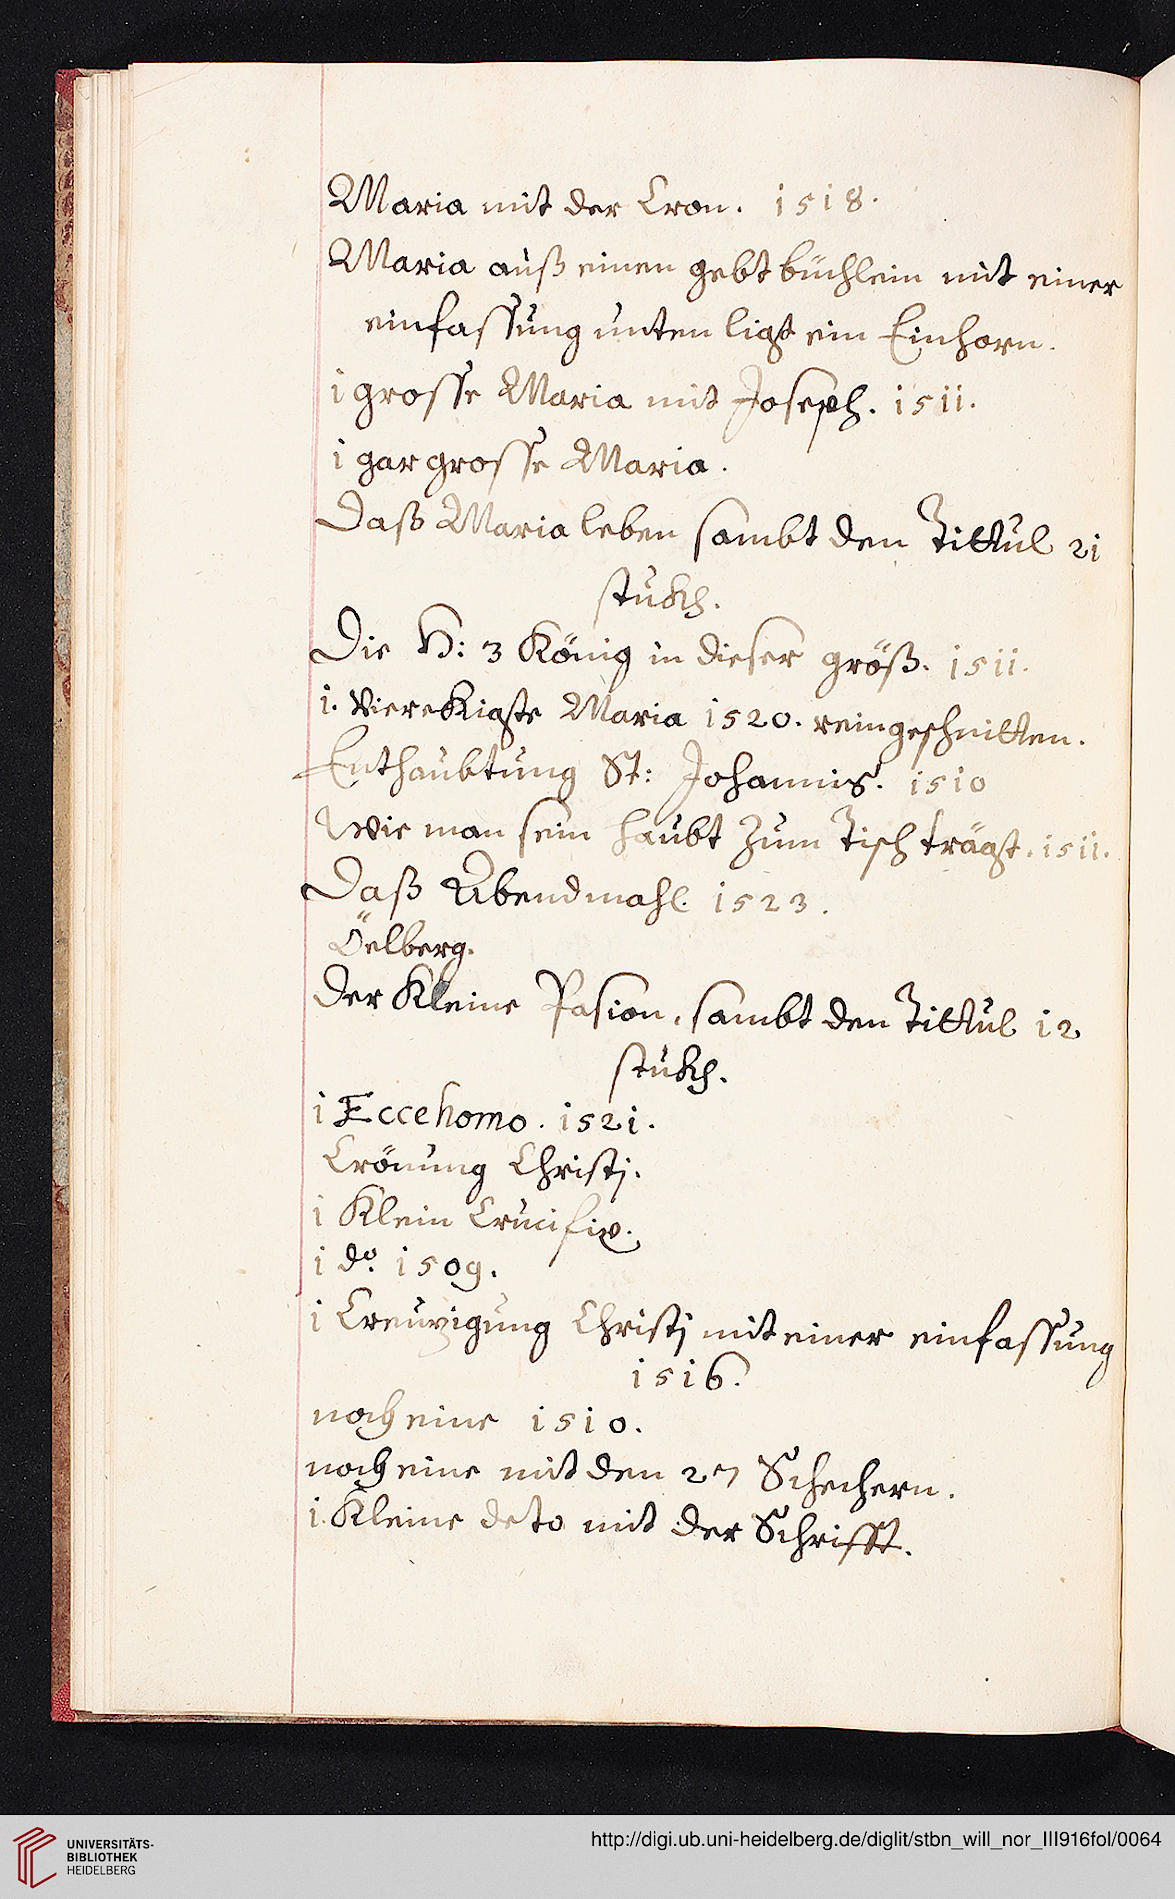 Maria mit der Cron. 1518.
Maria auß einen gebt büchlein mit einer
einfassung unten ligt ein Einhorn.
1 grosse Maria mit Joseph. 1511.
1 gar grosse Maria.
Daß Maria leben sambt den Tittul 21
stückh.
Die H: 3 König in dieser größ. 1511.
1. Vierekigste Maria 1520. reingeschnitten.
Enthaubtung St: Johannis. 1510
Wie man sein haubt zum Tisch trägt. 1511.
Daß Abendmahl. 1523.
Öelberg.
Der Kleine Pasion, sambt den Tittul 12
stückh.
1 Ecce homo. 1521.
Crönung Christj.
1 Klein Crucifix.
1 do. 1509.
1 Creuzigung Christj mit einer einfassung
1516.
noch eine 1510.
noch eine mit den 2n Schechern.
1. Kleine deto mit der Schrifft.
UNIVERSITÄTS-
BIBLIOTHEK
HEIDELBERG
http://digi.ub.uni-heidelberg.de/diglit/stbn_will_nor_III916fol/0064